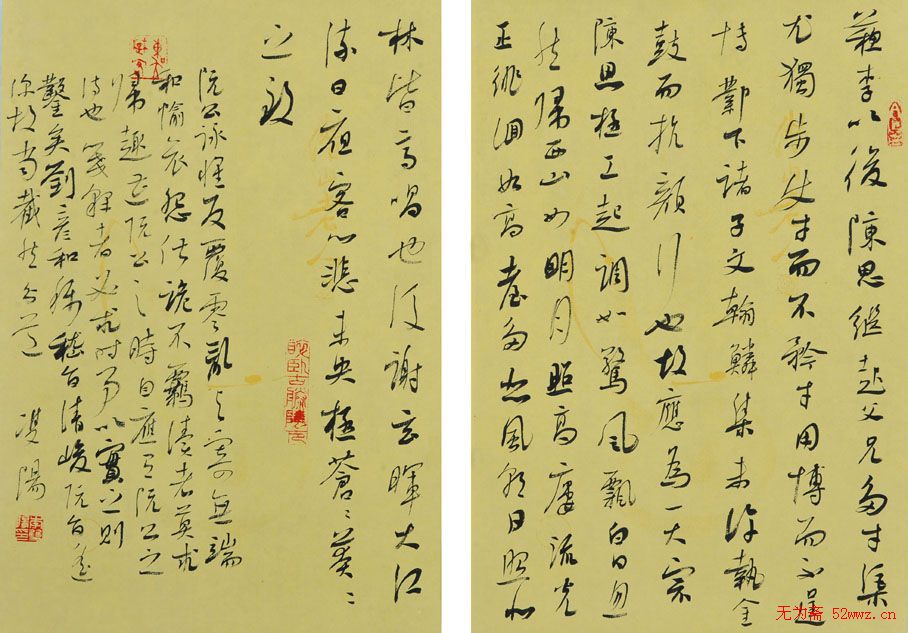 蘇李以後陳思繼起父兄多才渠
尤獨步使才而不矜才用博而不逞
博鄴下諸子文翰鱗集未許執金
鼓而抗顏行也故應為一大宗
陳思極工起調如驚風飄白日忽
然歸西山如明月照高廔流光
正徘徊如高臺多悲風朝日照北
林皆高唱也後謝玄暉大江
流日夜客心悲未央極蒼〻莽〻
之致
阮公詠懷反覆零亂興寄無端
和愉哀怨俶詭不羈讀者莫求
歸趣遭阮公之時自應有阮公之
詩也箋釋者必求時事以實之則
鑿矣劉彥和稱嵇旨清峻阮旨遙
深故當截然分道
陽
无为斋 52wwz.cn